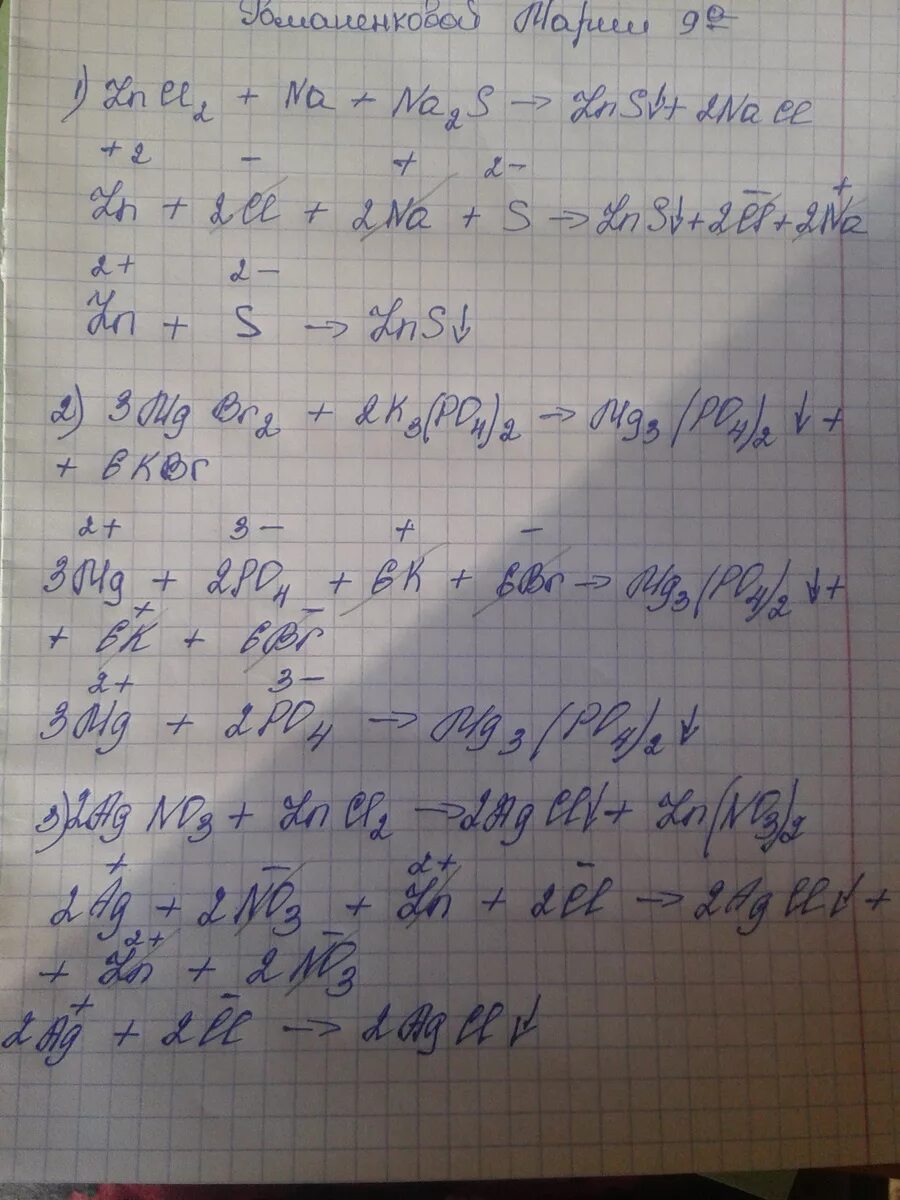 Романенковой Марии 9а
1) ZnCl₂ + Na + Na₂S → ZnS↓ + 2NaCl
+2 − + 2−
Zn + 2Cl + 2Na + S → ZnS↓ + 2Cl⁻ + 2Na⁺
2+ 2−
Zn + S → ZnS↓
2) 3MgBr₂ + 2K₃(PO₄)₂ → Mg₃(PO₄)₂↓ +
+ 6KBr
2+ 3− + −
3Mg + 2PO₄ + 6K + 6Br → Mg₃(PO₄)₂↓ +
+ 6K⁺ + 6Br⁻
2+ 3−
3Mg + 2PO₄ → Mg₃(PO₄)₂↓
3) 2AgNO₃ + ZnCl₂ → 2AgCl↓ + Zn(NO₃)₂
+ − 2+ −
2Ag + 2NO₃ + Zn + 2Cl → 2AgCl↓ +
+ Zn²⁺ + 2NO₃⁻
2Ag⁺ + 2Cl⁻ → 2AgCl↓